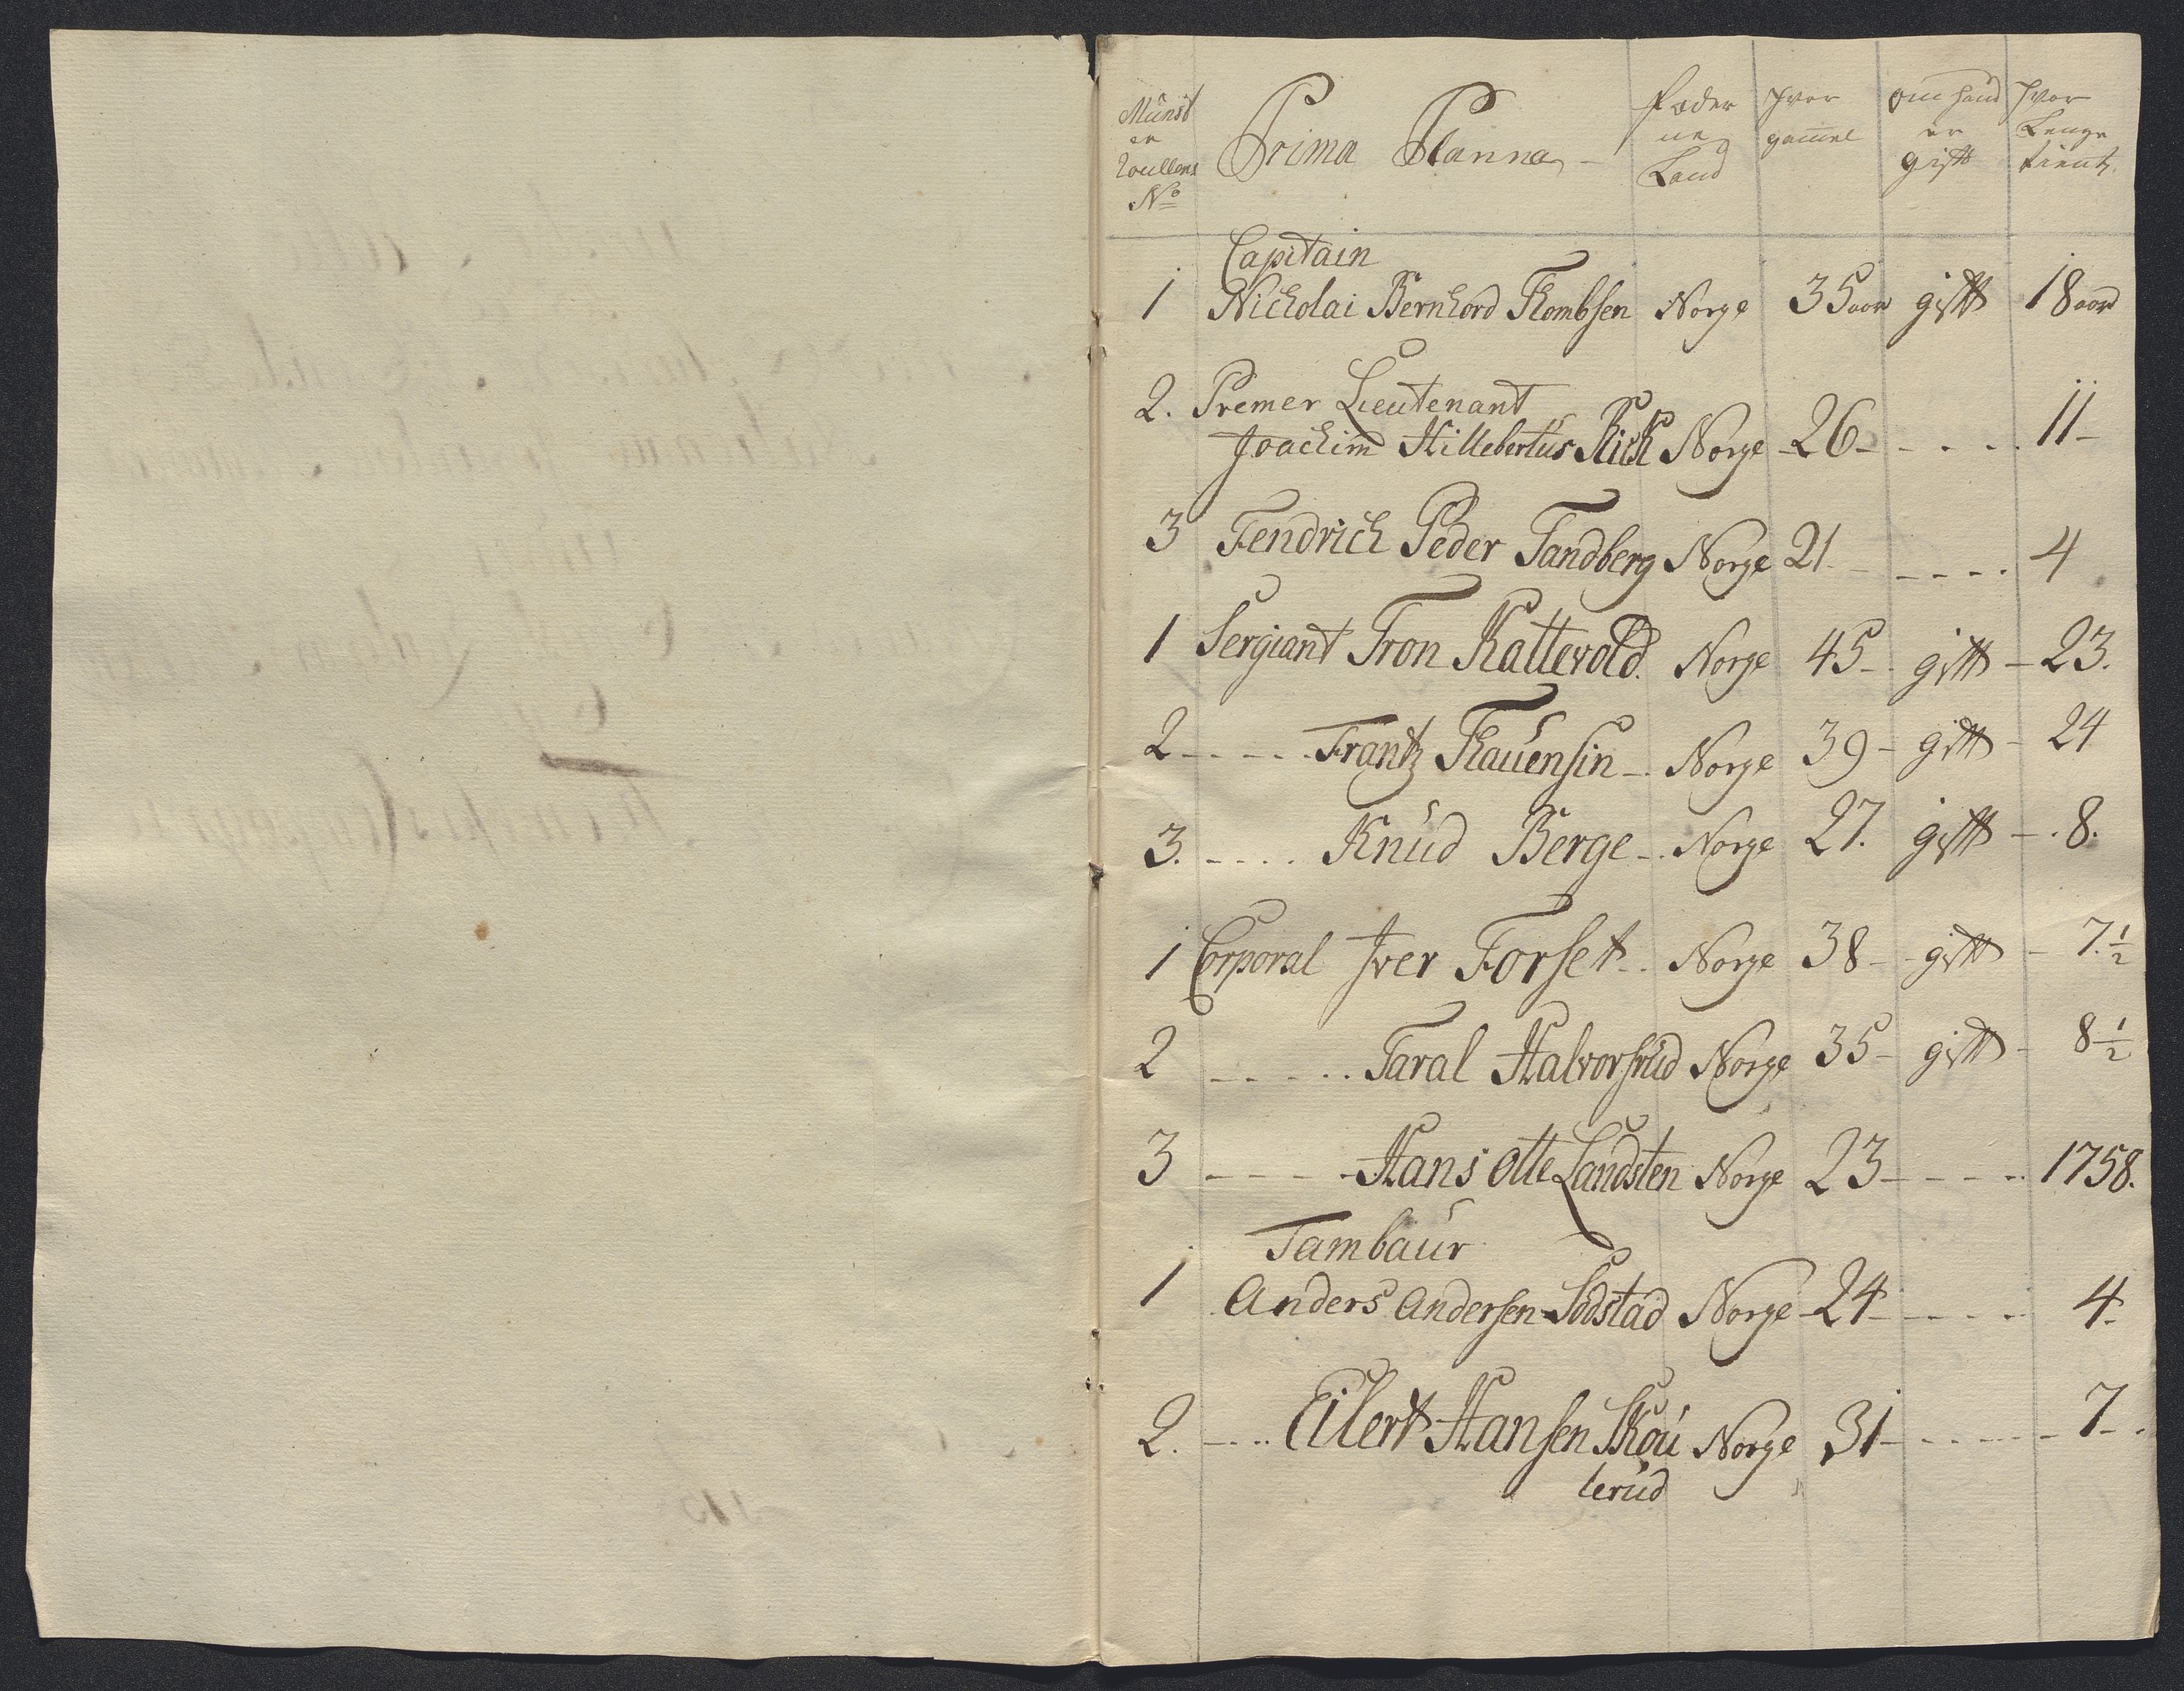 Münst
er
Roullens
No
Prima Planna
Fæder
ne
Land
Hvor
gammel
om hand
er
gift
Hvor
Lenge
tient
Capitain
1 Nicholai Bernhord Thombsen Norge 35 aar gift 18 aar
2. Premer Lieutenant
Joachim Hillebertus Norge 26 - - - - 11 -
3 Fendrich Peder Tandberg Norge 21 - - - - 4
1 Sergiant Tron Kattevold Norge 45 - gift - 23.
2 - - - - Frantz Norge 39 - gift - 24
3. - - - - Knud Berge - Norge 27. gift - 8.
1 Corporal Iver Forset - Norge 38 - gift - 7 1/2
2 - - - - Taral Halvorsrud Norge 35 - gift - 8 1/2
3 - - - - Hans Otte Landsten Norge 23 - - - - 1758.
Tambaur
1 Anders Andersen Sodstad Norge - 24 - - - - 4 -
2. - - - Eilert Hansen Skou Norge 31 - - - - 7 -
terud